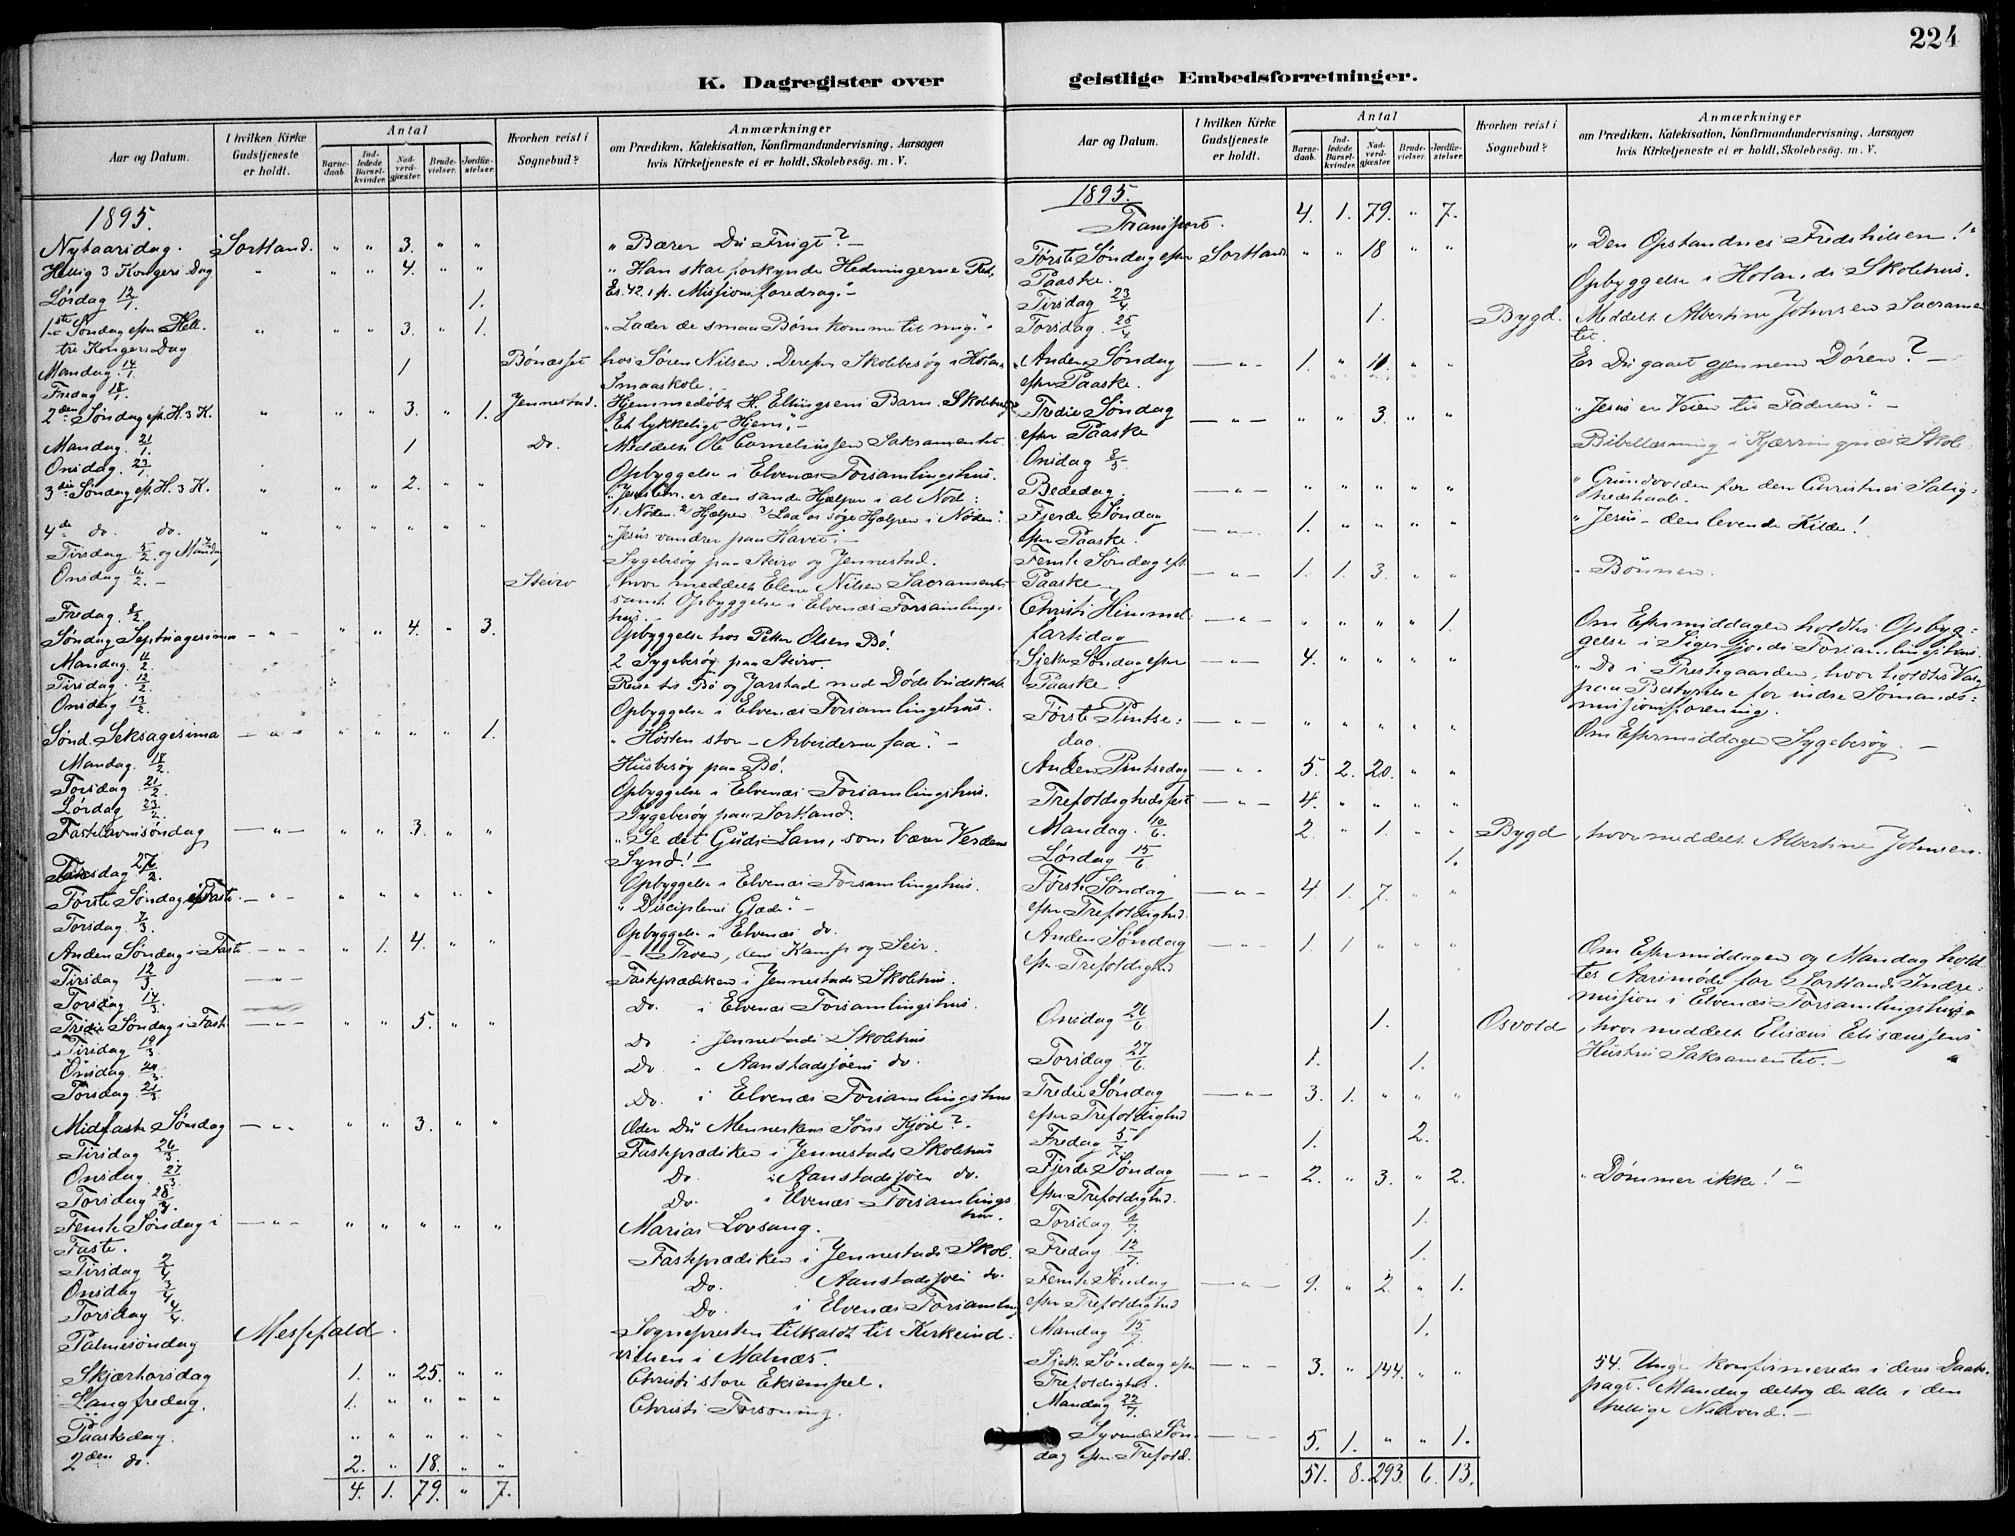 224
K. Dagregister over geistlige Embedsforretninger.
Aar og Datum.
I hvilken Kirke Gudstjeneste er holdt.
Antal
Barnedaab.
Indledede Barselkvinder.
Nadverdgjæster.
Brudevielser.
Jordfæstelser.
Hvorhen reist i Sognebud?
Anmærkninger
om Prædiken, Katekisation, Konfirmandundervisning, Aarsagen
hvis Kirketjeneste ei er holdt, Skolebesøg. m. V.
1895.
Nytaarsdag. Sortland. " " 3. " " "Bærer Du Frugt? –
Hellig 3 Kongers Dag " " " 4. " " "Han skal forkynde Hedningerne Ret,
Es. 42. 1 fl. Missionsforedrag." –
Lørdag 12/1. 1.
1ste Søndag efter Hell. " " " 3. " 1. "Lader de smaa Børn komme til mig."
tre Kongers Dag
Mandag. 14/1. 1 Bønæsset hos Søren Nilsen. Derefter Skolebesøg i Holands
Smaaskole.
Fredag 18/1. Jennestad. Hjemmedøbt H. Ellingsens Barn. Skolebesøg
2den Søndag ef. H. 3 K. " " " 3. " 1. "Et lykkeligt Hjem". –
Mandag. 21/1. 1 Do. Meddelt Ole Corneliussen Sakramentet
Onsdag. 23/1. Opbyggelse i Elvenæs Forsamlingshus.
3die Søndag ef. H. 3 K. " " " 2. " " "Jesus Chr. er den sande Hjælper i al Nød:
1. Nøden. 2) Hjælpen 3) Lad os søge Hjælpen i Nøden".
4de do. do. " " " " " " "Jesus vandrer paa Havet. –
Tirsdag 5/2 og Mandag Sygebesøg paa Steiro og Jennestad.
Onsdag. 6/2. – Steiro hvor meddelt Elene Nilsen Sacramentet
samt Opbyggelse i Elvenæs Forsamlings-
hus. –
Fredag. 8/2. Opbyggelse hos Petter Olsen Bø.
Søndag Septuagesima – " – " " 4. " 3.
Mandag. 11/2. 2 Sygebesøg paa Steiro.
Tirsdag. 12/2. Reise til Bø og Jarstad med Dødsbudskab.
Onsdag 13/2. Opbyggelse i Elvenæs Forsamlingshus.
Sønd. Seksagesima – " – " " " " 1. "Høsten stor – Arbeiderne faa". –
Mandag. 18/2. Husbesøg paa Bø.
Torsdag 21/2. Opbyggelse i Elvenæs Forsamlingshus.
Lørdag 23/2. Sygebesøg paa Sortland.
Fastelavnssøndag – " – " " 3. " " "Se det Guds Lam, som bærer Verdens
Synd! –
27/2. Opbyggelse i Elvenæs Forsamlingshus.
Første Søndag i Faste. – " – " " " " " "Disciplens Glæde." –
Torsdag. 7/3. Opbyggelse i Elvenæs do.
Anden Søndag i Faste – " – " 1. 4. " " – Troen, dens Kamp og Seir.
Tirsdag 12/3. – " – Fasteprædiken i Jennestads Skolehus.
Torsdag 14/3. Do. i Elvenæs Forsamlingshus.
Tredie Søndag i Faste – " – " " 5. " "
Tirsdag 19/3. Do i Jennestads Skolehus
Onsdag. 20/3. Do " Aanstadsjøens do.
Torsdag. 21/3. Do. i Elvenæs Forsamlingshus
Midfaste Søndag – " – " " 3. " " Æder Du Menneskens Søns Kjød? –
Tirsdag 26/3. Fasteprædiken i Jennestads Skolehus
Onsdag. 27/3. Do. i Aanstadsjøen do.
Torsdag 28/3. Do. i Elvenæs Forsamlings
hus.
Femte Søndag i – " – " " " " " Marias Lovsang.
Faste.
Tirsdag 2/4 Fasteprædiken i Jennestads Skol.
Onsdag 3/4 Do. Aanstadsjøen do.
Torsdag 4/4. Do. i Elvenæs Forsamling
Palmesøndag Messefald. Sognepresten tilkaldt til Kirkeind-
vielsen i Malnæs.
Skjærtorsdag 1. " 25. " " Christi store Eksempel.
Langfredag. 1. " " " " Christi Forsoning.
Paaskedag. " " " " "
2den do. 2. " 18. " "
4. 1. 79. " 7.
Aar og Datum.
I hvilken Kirke Gudstjeneste er holdt.
Antal
Barnedaab.
Indledede Barselkvinder.
Nadverdgjæster.
Brudevielser.
Jordfæstelser.
Hvorhen reist i Sognebud?
Anmærkninger
om Prædiken, Katekisation, Konfirmandundervisning, Aarsagen
hvis Kirketjeneste ei er holdt, Skolebesøg. m. V.
1895.
Transport. 4. 1. 79. " 7.
Første Søndag efter Sortland " " 18 " " "Den Opstandnes Fredshilsen!"
Paaske.
Tirsdag 23/4. Opbyggelse i Holands Skolehus.
Torsdag. 25/4. 1. Bygd. Meddelt Albertine Johnsen Sacramen
tet.
Anden Søndag – " – 1. " 10. " " Er Du gaaet gjennem Døren? –
efter Paaske.
Tredie Søndag – " – " " 3 " " "Jesus er Veien til Faderen". –
efter Paaske
Onsdag 8/5. Bibellæsning i Kjærringnæs Skol.
Bededag. – " – " " " " " "Grundvolden for den Christnes Salig-
hedshaab.
Fjerde Søndag – " – 1. " " " " "Jesus – den levende Kilde!
efter Paaske.
Femte Søndag eft. – " – 1. 1. 3. " " "Bønnen.
Paaske
Christi Himmel – " – " " " " 1. Om Eftermiddagen holdtes Opbyg-
fartsdag gelse i Sigerfjords Forsamlingshus.
Sjette Søndag efter – " – 4. " " " " "Do i Prestegaarden, hvor holdtes Valg
Paaske. paa Bestyrelse for indre Sømands-
missionsforening.
Første Pintse- – " – " " " " "
dag. Om Eftermiddagen Sygebesøg. –
Anden Pintsedag – " – 5. 2. 20. " "
Trefoldighedsfest – " – 4. " " " "
Mandag. 10/6. 2. " 1. " " Bygd, hvor meddelt Albertine Johnsen.
Lørdag 15/6. 1.
Første Søndag – " – 4. 1. 7. " "
efter Trefoldighed.
Anden Søndag – " – 1. 1 " " " Om Eftermiddagen og Mandag hold-
efter Trefoldighed tes Aarsmøde for Sortlands Indre-
mission i Elvenæs Forsamlingshus
Onsdag 26/6 1. Osvold, hvor meddelt Elisæus Elisæussens
Hustru Saksamentet. –
Torsdag 27/6. 1. 1.
Tredie Søndag – " – 3. 1. " " "
efter Trefoldighed
Fredag 5/7. 1. 2.
Fjerde Søndag – " – 2. " 3. " 2. "Dømmer ikke!" –
efter Trefoldighed.
Torsdag /7. 1.
Fredag 12/7. 1.
Femte Søndag – " – 9. " 2 " 1.
efter Trefoldighed
Mandag 15/7. 1.
Sjette Søndag efter – " – 3. " 144. " " 54. Unge konfirmeredes i deres Daabs-
Trefoldighed. pagt. Mandag deltog de alle i den
Mandag 22/7. hellige Nadverd. –
Syvende Søn- – " – 5. 1. " " 1.
dag efter Trefold.
51. 8. 293. 6. 13.